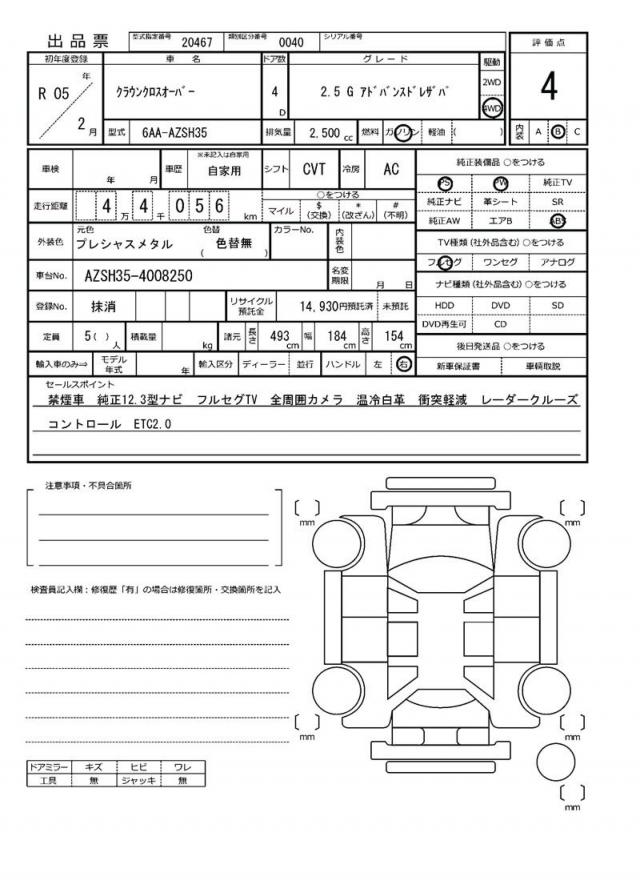 出品票 型式指定番号 20467 類別区分番号 0040 シリアル番号
評価点
初年度登録 車名 ドア数 グレード 駆動
R 05 年 2 月 クラウンクロスオーバー 4 D 2.5 G アドバンスドレザパ 2WD 4WD
4
型式 6AA-AZSH35 排気量 2,500 cc 燃料 ガソリン 軽油 ( )
内装 A B C
車検 年 月 車歴 ※未記入は自家用 自家用 シフト CVT 冷房 AC
純正装備品 ○をつける
PS PW 純正TV
走行距離 4 4 万 4 千 0 5 6 km
○をつける
マイル $ (交換) * (改ざん) # (不明)
純正ナビ 革シート SR
純正AW エアB ABS
外装色 元色 プレシャスメタル 色替 ( 色替無 ) カラーNo. 内装色
TV種類 (社外品含む) ○をつける
フルセグ ワンセグ アナログ
車台No. AZSH35-4008250 名変期限 月 日
ナビ種類 (社外品含む) ○をつける
登録No. 抹消 リサイクル預託金 14,930円預託済 未預託
HDD DVD SD
DVD再生可 CD
定員 5( ) 人 積載量 kg 諸元 長さ 493 cm 幅 184 cm 高さ 154 cm
後日発送品 ○をつける
輸入車のみ⇒ モデル年式 年 輸入区分 ディーラー 並行 ハンドル 左 右
新車保証書 車輌取説
セールスポイント
禁煙車 純正12.3型ナビ フルセグTV 全周囲カメラ 温冷白革 衝突軽減 レーダークルーズ
コントロール ETC2.0
注意事項・不具合箇所
mm mm
検査員記入欄:修復歴「有」の場合は修復箇所・交換箇所を記入
mm mm
ドアミラー キズ ヒビ ワレ
工具 無 ジャッキ 無
mm